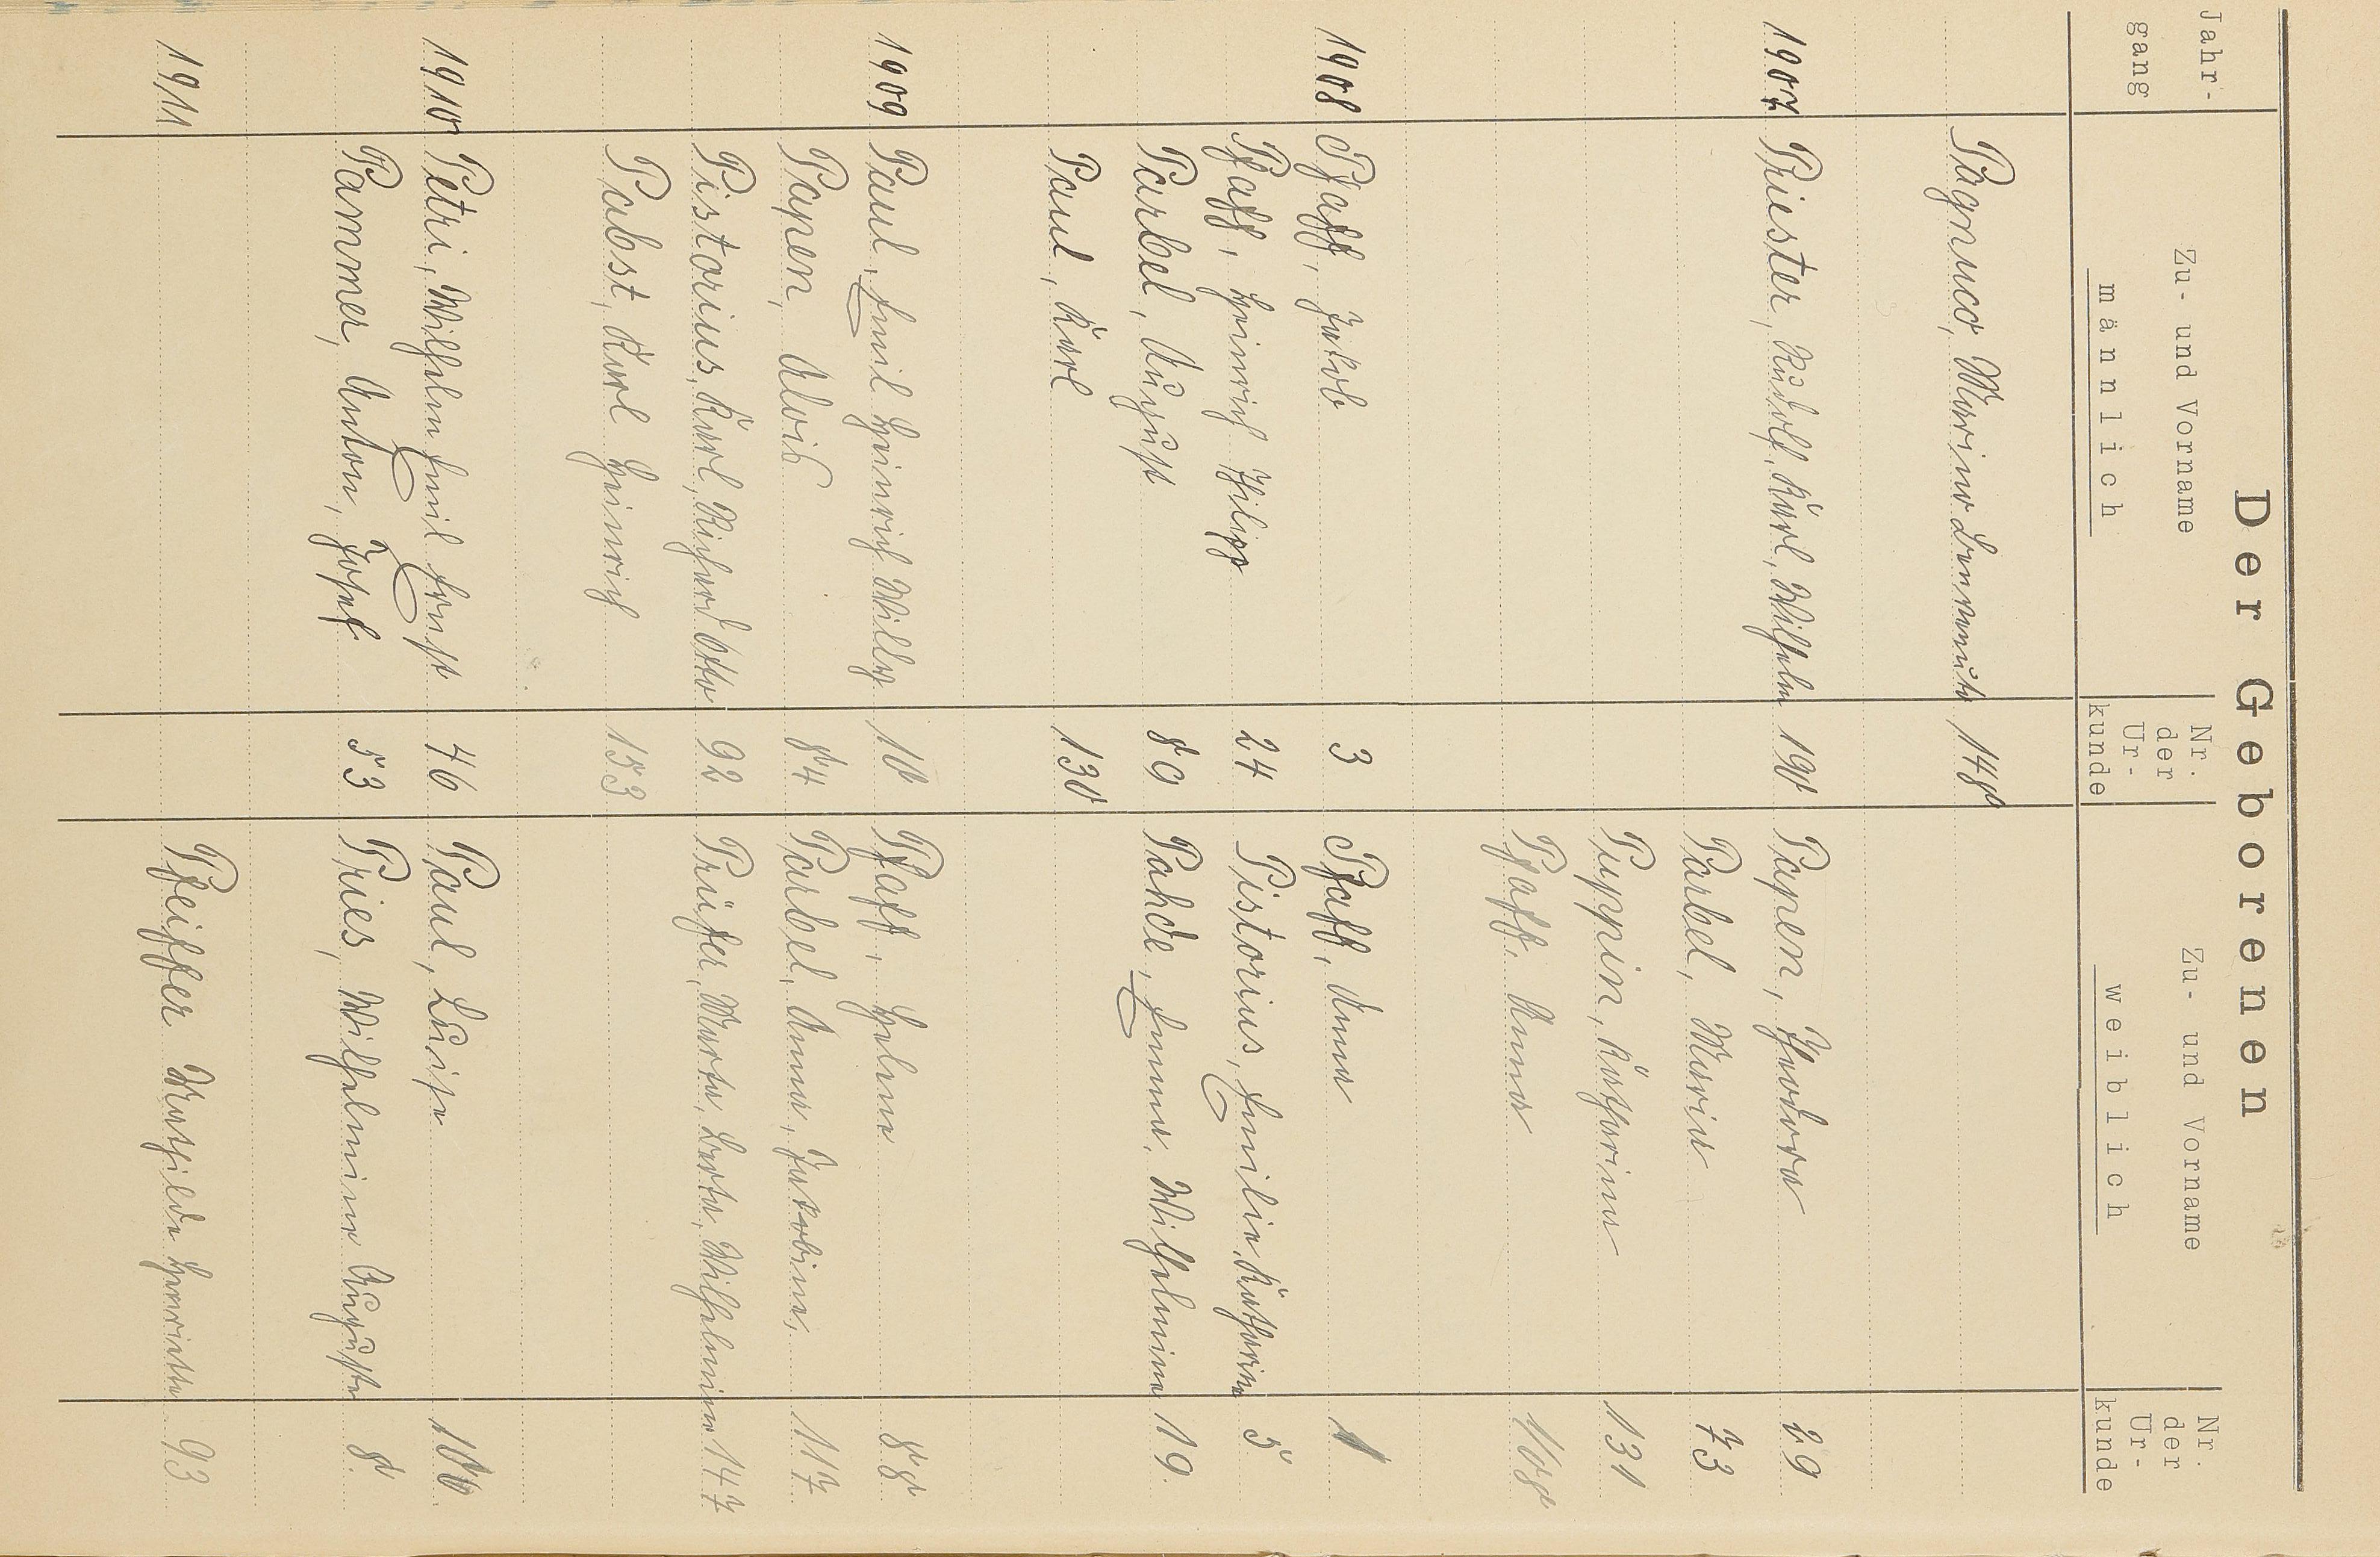 Der Geborenen
Jahr-gang Zu- und Vorname männlich Nr. der Ur-kunde Zu- und Vorname weiblich Nr. der Ur-kunde
Pagnuco, Marino 148
1907 Priester, Rudolf, Karl, Wilhelm 190 Papen, Theodora 29
Parbel, Maria 73
Puppin, Katharina 131
Pfaff, Anna 168
1908 Pfaff, Jakob 3 Pfaff, Anna 1
Pfaff, Heinrich Philipp 24 Pistorius, Emilie, Katharina 5
Parbel, August 89 Pahde, Emma, Wilhelmine 19
Paul, Karl 130
1909 Paul, Emil Heinrich Willy 10 Pfaff, Helene 88
Papen, Alois 84 Parbel, Anna, Jakobine, 117
Pistorius, Karl, Richard Otto 92 Prüfer, Marta, Berta, Wilhelmine 147
Pabst, Karl Heinrich 153
1910 Petri, Wilhelm Emil Ernst 46 Paul, Luise 106
Pammer, Anton, Josef 53 Pries, Wilhelmine Auguste 8.
1911 Pfeiffer Mathilde Henriette 93